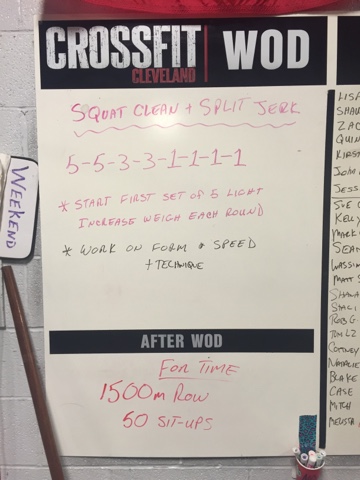 CROSSFIT
CLEVELAND
WOD
SQUAT CLEAN + SPLIT JERK
5-5-3-3-1-1-1-1
* START FIRST SET OF 5 LIGHT
INCREASE WEIGH EACH ROUND
* WORK ON FORM & SPEED
+ TECHNIQUE
AFTER WOD
FOR TIME
1500m ROW
50 SIT-UPS
WEEKEND
LISA
ZAC
QUIN
JOHN
JESS
KELL
MARK
SEAN
MATT S
STACI
ROB G
TOM LZ
NATALIE
BLAKE
CASE
MITCH